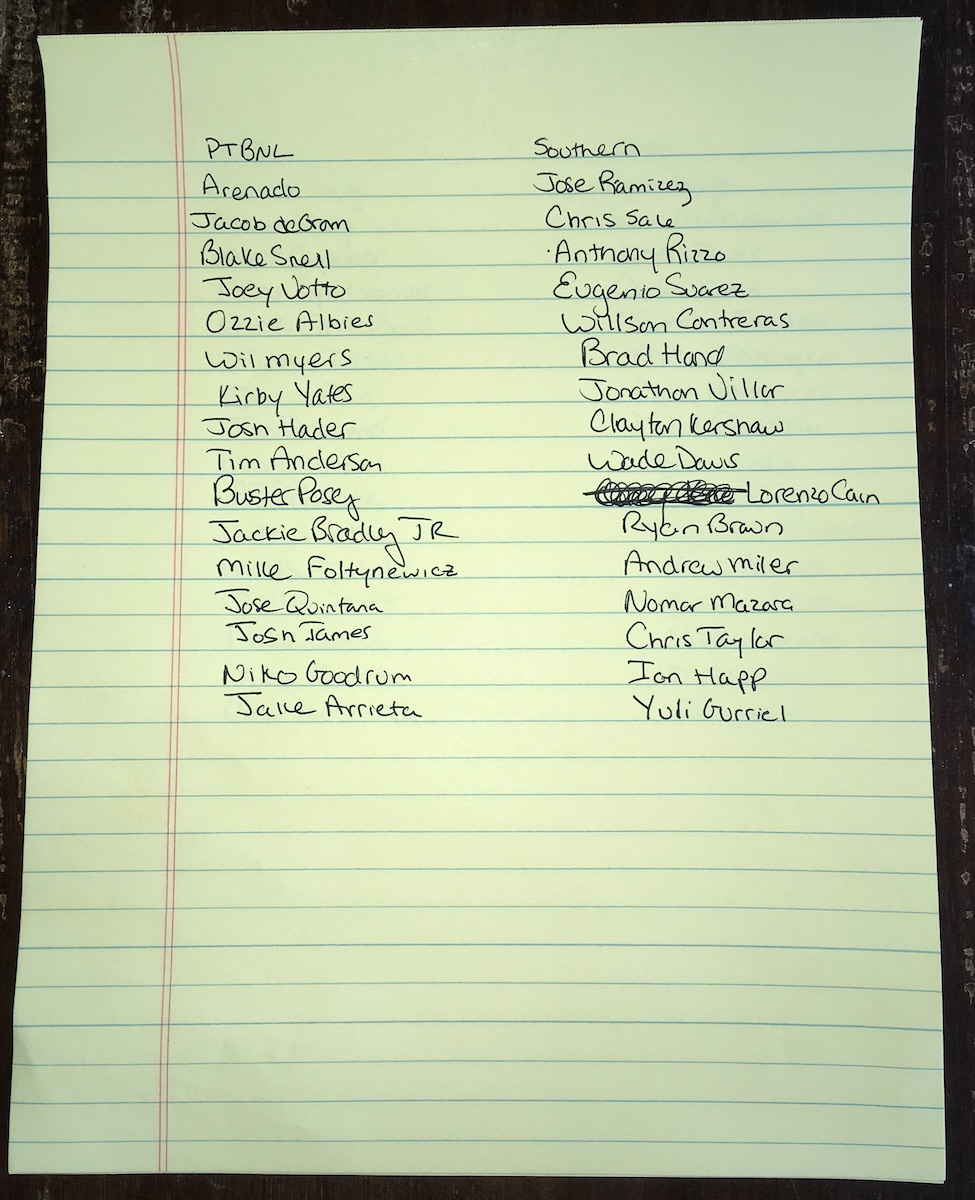 PTBNL
Arenado
Jacob deGrom
Blake Snell
Joey Votto
Ozzie Albies
Wil myers
Kirby Yates
Josh Hader
Tim Anderson
Buster Posey
Jackie Bradley JR
Mike Foltynewicz
Jose Quintana
Josh James
Niko Goodrum
Jake Arrieta
Southern
Jose Ramirez
Chris Sale
Anthony Rizzo
Eugenio Suarez
Willson Contreras
Brad Hand
Jonathan Villar
Clayton Kershaw
Wade Davis
Lorenzo Cain
Ryan Braun
Andrew miler
Nomar Mazara
Chris Taylor
Ian Happ
Yuli Gurriel